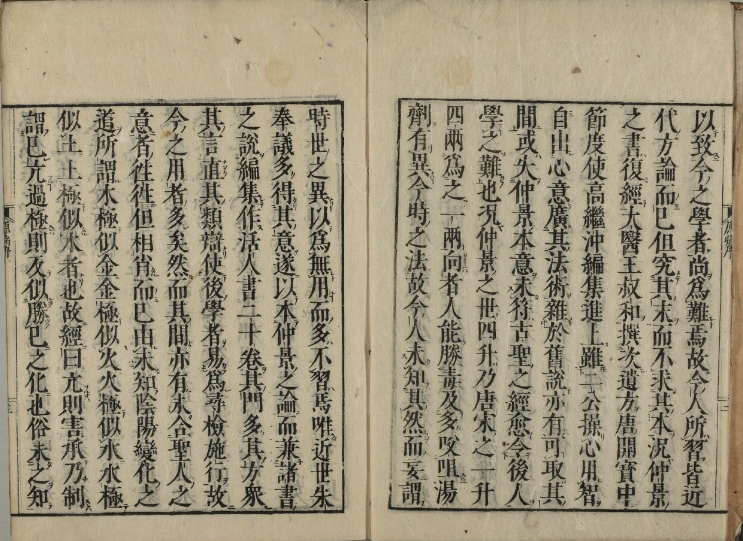 以致今之學者尚爲難焉故今人所習皆近
代方論而巳但究其末而不求其本况仲景
之書復經太醫王叔和撰次遺方唐開寶中
節度使高繼沖編集進上雖二公操心用智
自出心意廣其法術雜於舊說亦有可取其
間或失仲景本意未符古聖之經愈令後人
學之難也况仲景之世四升乃唐宋之一升
四兩爲之一兩向者人能勝毒及多㕮咀湯
劑有異今時之法故今人未知其然而妄謂
時世之異以爲無用而多不習焉唯近世朱
奉議多得其意遂以本仲景之論而兼諸書
之說編集作活人書二十卷其門多其方衆
其言直其類辯使後學者易爲尋檢施行故
今之用者多矣然而其間亦有未合聖人之
意者徃徃但相肖而巳由未知陰陽變化之
道所謂木極似金金極似火火極似水水極
似土土極似木者也故經曰亢則害承乃制
謂巳亢過極則反似勝巳之化也俗未之知